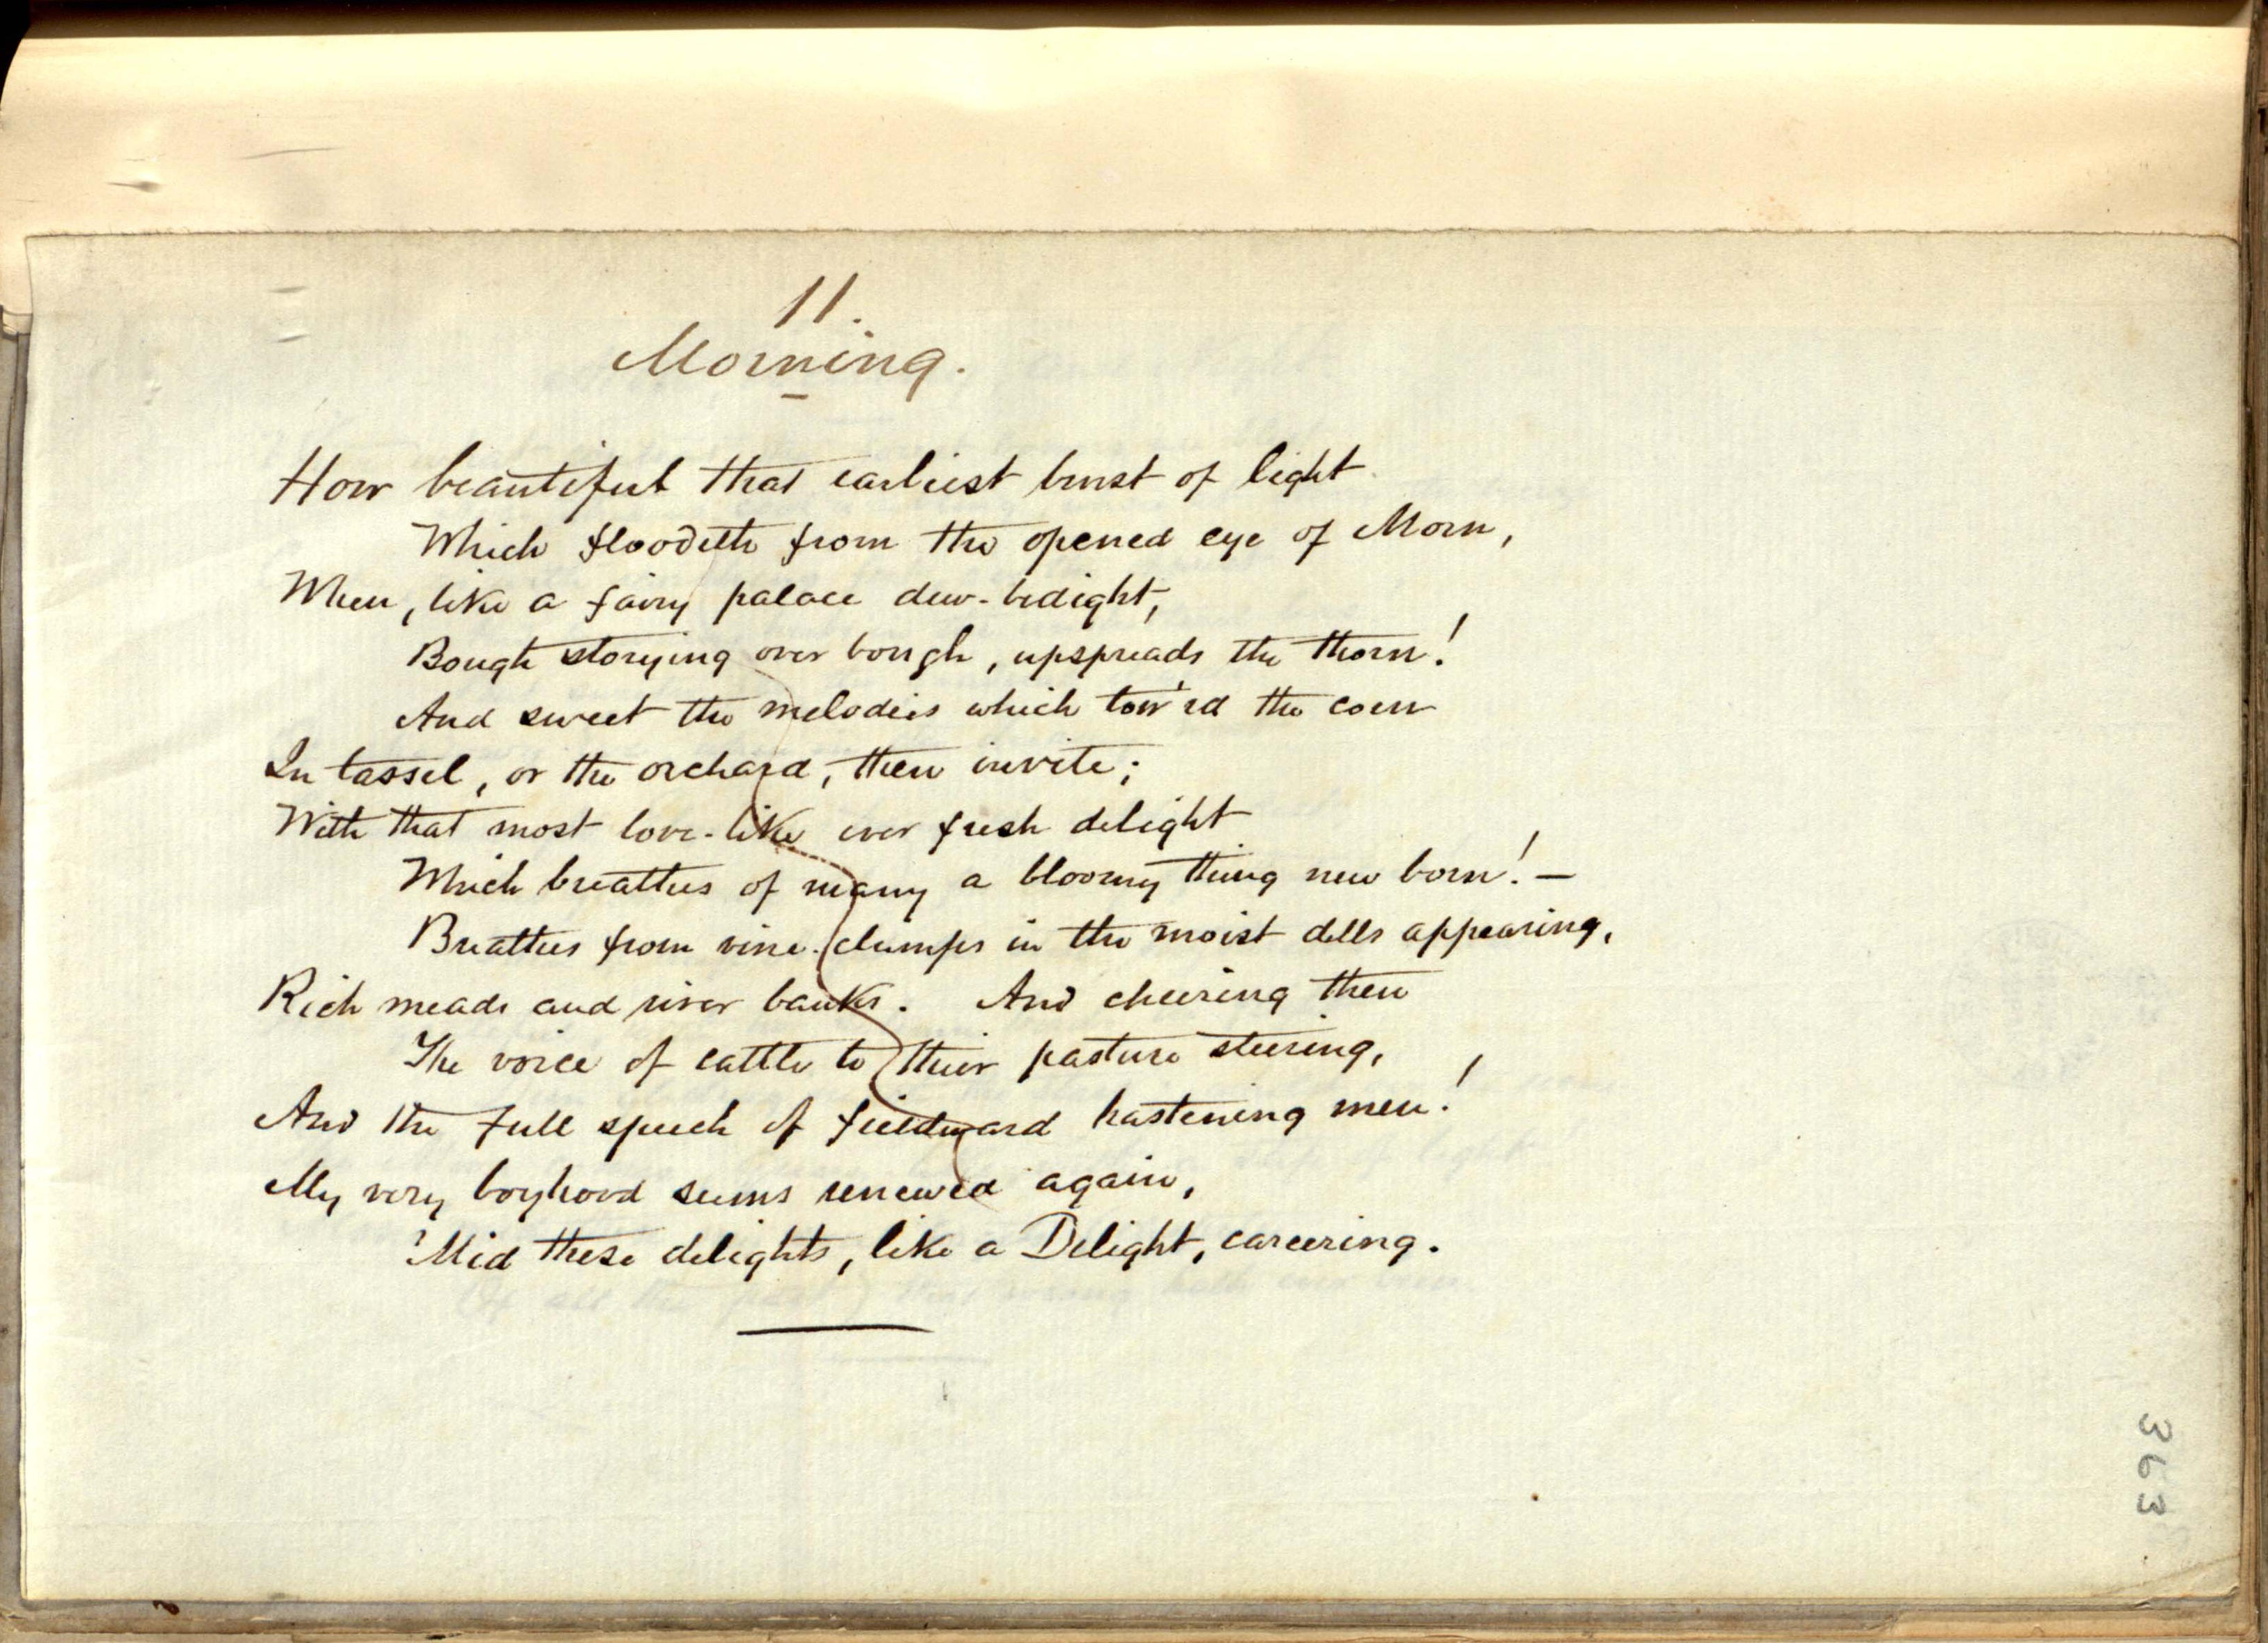 11.
Morning.
How beautiful that earliest burst of light
Which floodeth from the opened eye of Morn,
When, like a fairy palace dew-bedight,
Bough storying over bough, upspreads the thorn!
And sweet the melodies which tow'rd the corn
In tassel, or the orchard, then invite;
With that most love-like ever fresh delight
Which breathes of many a bloomy thing new born! —
Breathes from vine-clumps in the moist dells appearing,
Rich meads and river banks. And cheering then
The voice of cattle to their pasture steering,
And the full speech of fieldward hastening men!
My very boyhood seems renewed again,
'Mid these delights, like a Delight, careering.
363